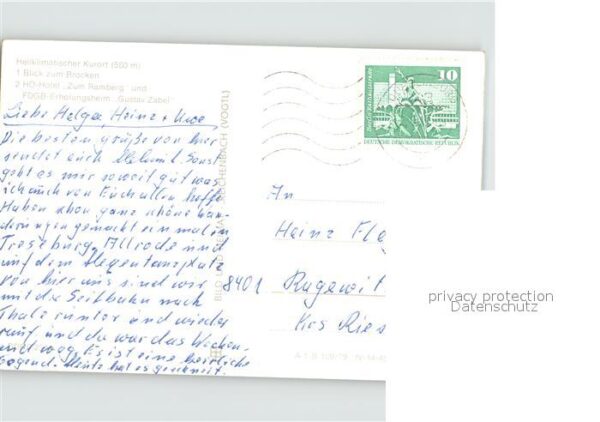 Heilklimatischer Kurort (500 m)
1 Blick zum Brocken
2 HO-Hotel „Zum Ramberg" und
FDGB-Erholungsheim „Gustav Zabel"
Liebe Helga, Heinz + Uwe
Die besten Grüße von hier
sendet euch Sonst
geht es mir soweit gut was
ich auch von Euch allen hoffe
Haben schon ganz schöne Wan-
derungen gemacht einmal in
Treseburg, Allrode und
auf dem Hexentanzplatz
von hier aus sind wir
mit die Seilbahn nach
Thale runter und wieder
rauf und da war das Wochen-
end weg. Es ist eine herrliche
Gegend. Heute hat es geregnet.
BILD UND HEIMAT REICHENBACH (VOGTL)
10
DEUTSCHE DEMOKRATISCHE REPUBLIK
An
Heinz Fle
8401 Ragewit
Krs Ries
privacy protection
Datenschutz